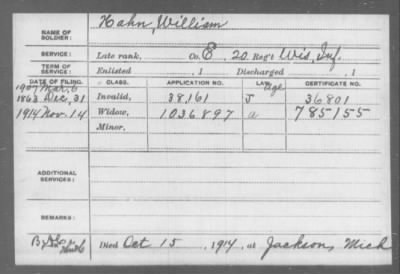 NAME OF SOLDIER: Hahn, William
SERVICE: Late rank, Co. E, 20 Reg't Wis. Inf.
TERM OF SERVICE: Enlisted , 1 Discharged , 1
DATE OF FILING. CLASS. APPLICATION NO. LAW. CERTIFICATE NO.
1907 Mar. 6 Age
1863 Dec. 31 Invalid, 38,161 J 36801
1914 Nov. 14 Widow, 1036.897 a 785155
Minor,
ADDITIONAL SERVICES:
REMARKS:
Died Oct 15, 1914, at Jackson, Mich